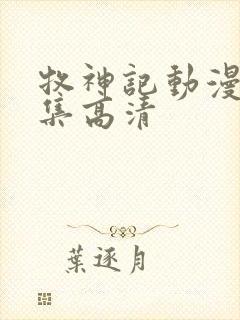 牧神記動漫
集高清
葉逐月